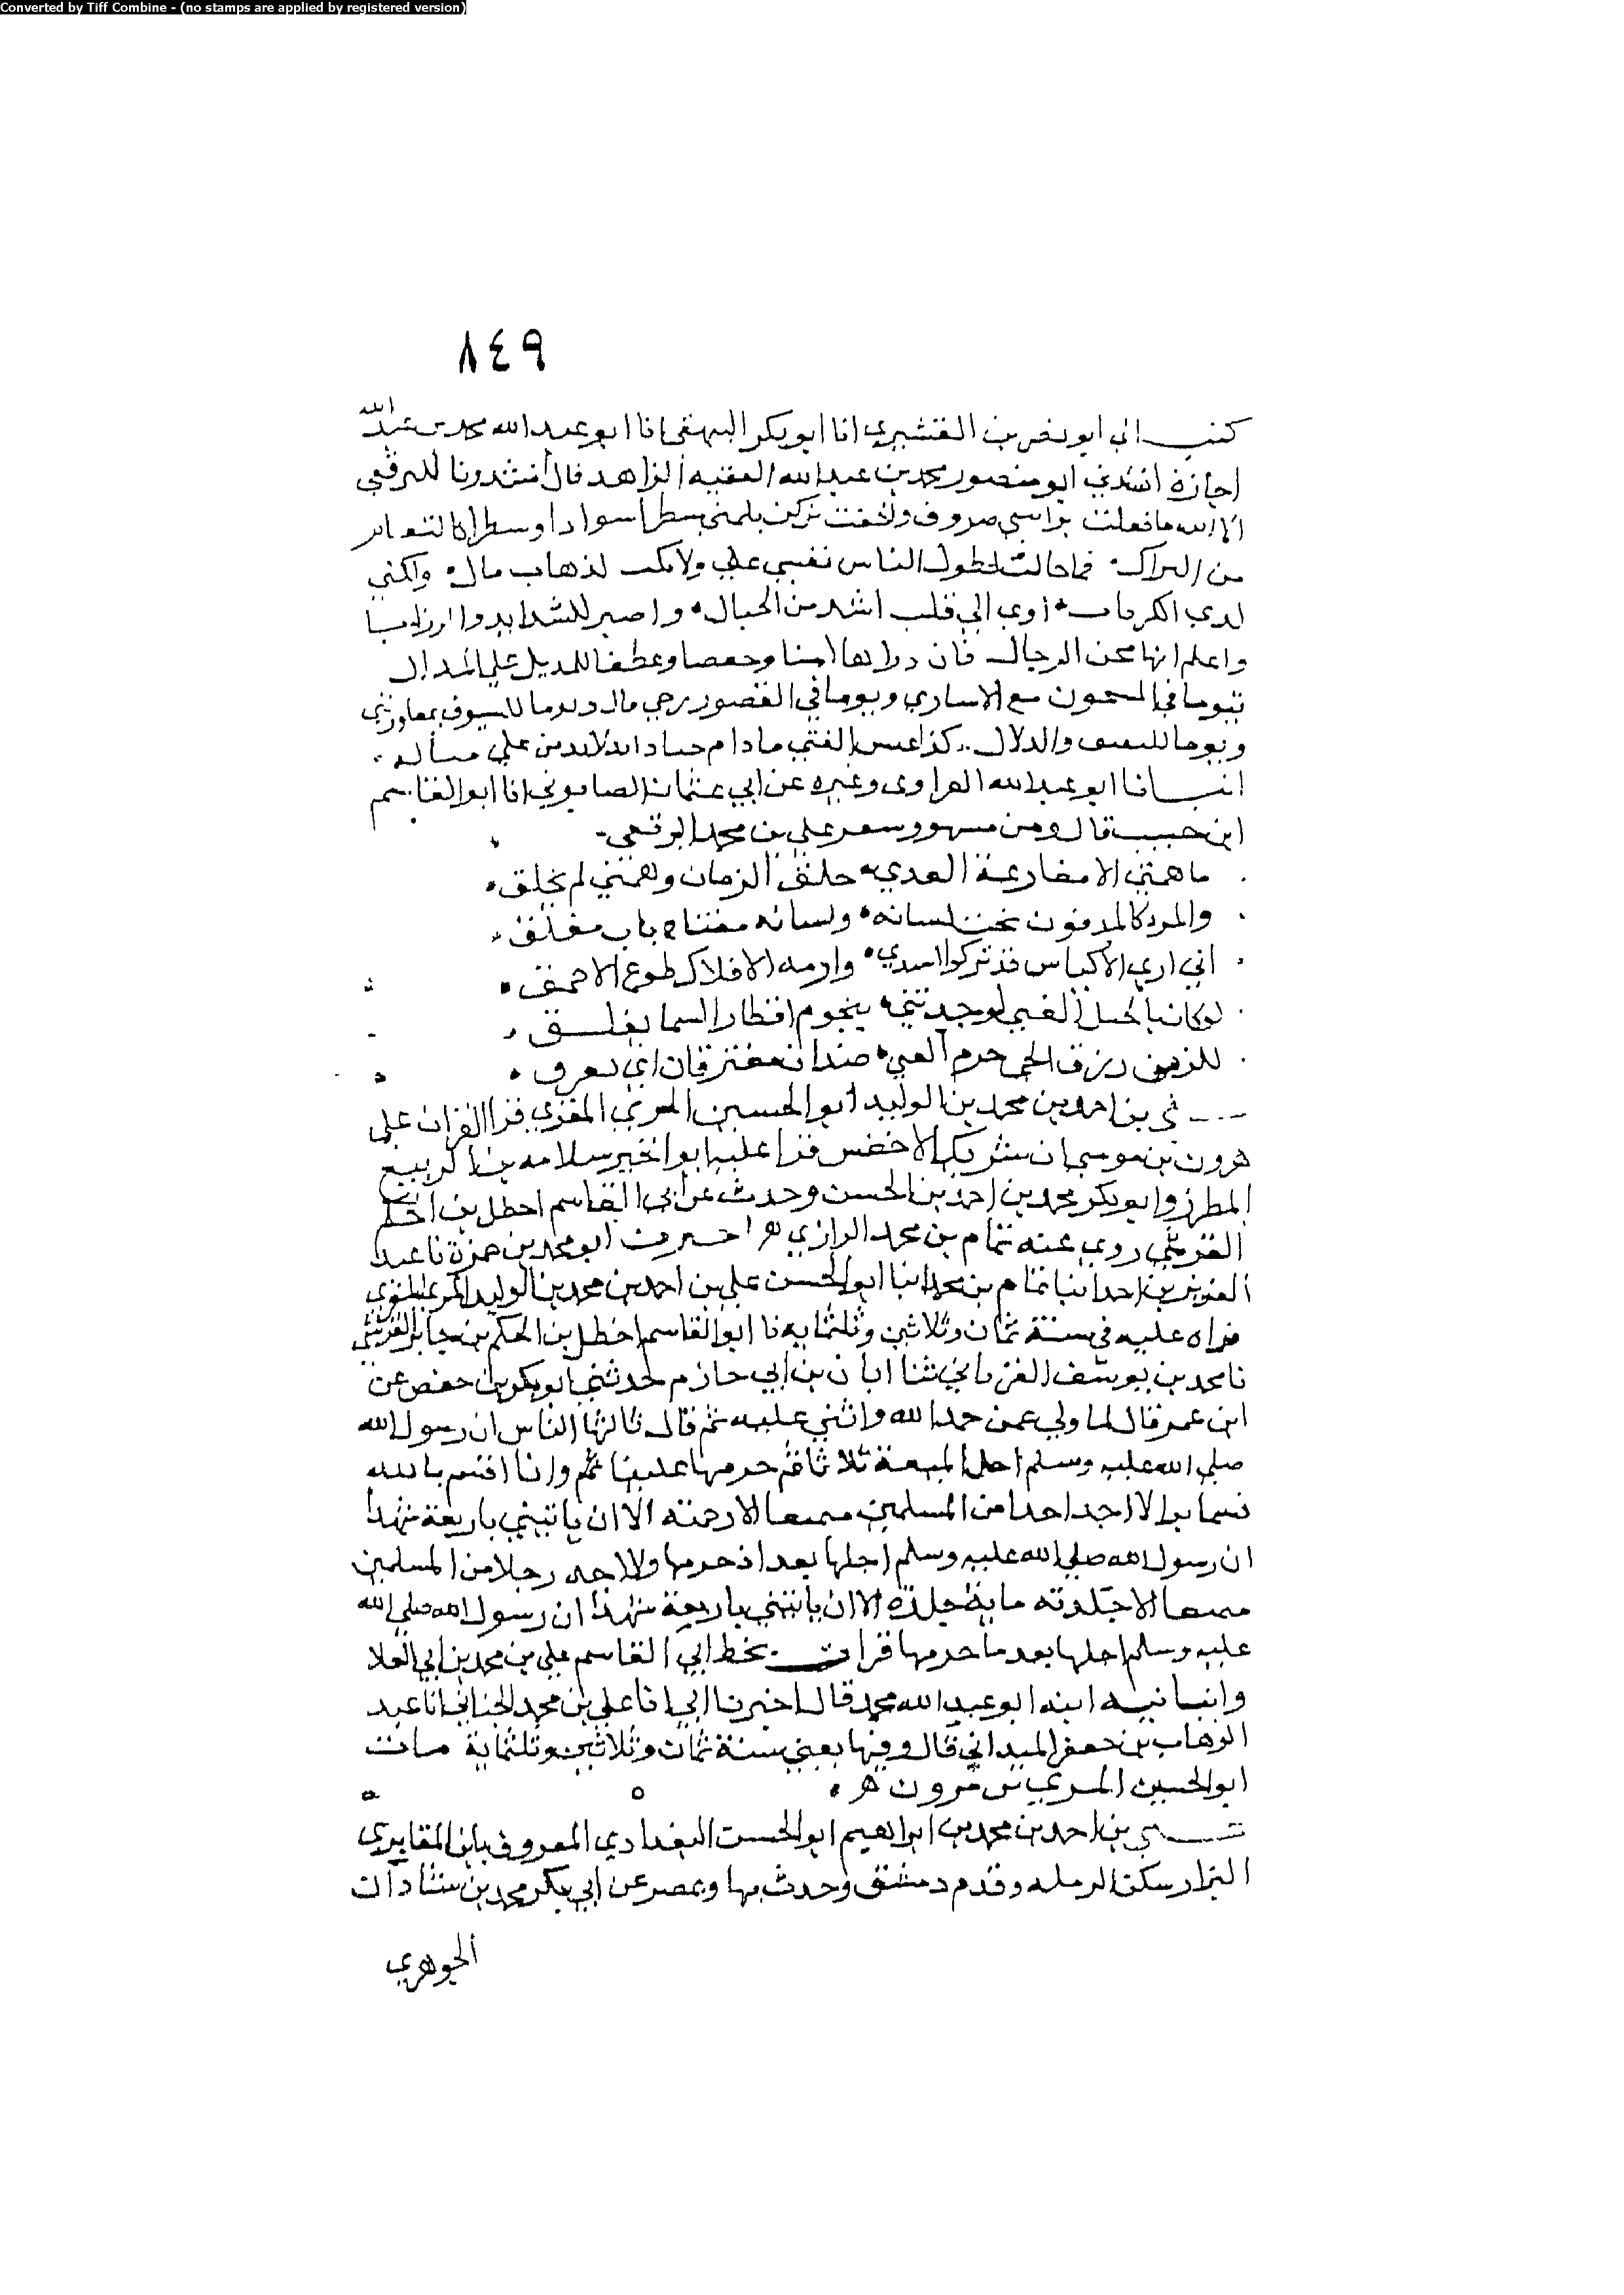 Converted by Tiff Combine - (no stamps are applied by registered version)
٨٤٩
كتب الي ابو نصر بن القشيري انا ابو بكر البيهقي انا ابو عبد الله محمد بن عبد الله
اجازة انشدني ابو منصور محمد بن عبد الله الفقيه الزاهد قال انشدونا للبرقعي
الا لله ما فعلت براسي صروف
من فما حالت لطول الناس نفسي علي ولا بكت لذهاب مال ولكني
لدي الكربات اوي الي قلب اشد من الجبال واصبر للشدايد والرزايا
واعلم انها محن الرجال فان وراها امنا وخفضا وعطفا للمديل علي المدال
فيوما في السجون مع الاساري ويوما في القصور رخي مال ويوما للسيوف
ويوما والدلال كذا عيش الفتي ما دام حيا
انبانا ابو عبد الله الفراوي وغيره عن ابي عثمان الصابوني انا ابو القاسم
ابن حبيب قال ومن مشهور شعر علي بن محمد البرقعي
ما همتي الا مقارعة العدي خلق الزمان وهمتي لم تخلق
والمرء كالمدفون تحت لسانه ولسانه مفتاح باب مغلق
اني اري الاكياس قد تركوا سدي وازمه الافلاك طوع الاحمق
لو كان بالحيل الغني لوجدتني بنجوم اقطار السما تعلق
لكن من رزق الحجي حرم الغني ضدان مفترقان اي تفرق
علي بن احمد بن محمد بن الوليد ابو الحسين المري المقري قرا القران علي
هرون بن موسي بن شريك الاخفش قرا عليه ابو الخير سلامه بن الربيع
المطرز وابو بكر محمد بن احمد بن الحسن وحدث عن ابي القاسم اخطل بن الحكم
القرشي روي عنه تمام بن محمد الرازي اخبرنا ابو محمد بن حمزة نا عبد
العزيز بن احمد انبا تمام بن محمد انبا ابو الحسن علي بن احمد بن محمد بن الوليد المري المقري
قراه عليه في سنة ثمان وثلاثين وثلثمايه نا ابو القاسم اخطل بن الحكم بن جابر القرشي
نا محمد بن يوسف الفريابي ثنا ابان بن ابي حازم حدثني ابو بكر بن حفص عن
ابن عمر قال لما ولي عمر حمد الله واثني عليه ثم قال يا ايها الناس ان رسول الله
صلي الله عليه وسلم احل المتعة ثلاثا ثم حرمها علينا ثم وانا اقسم بالله
قسما لا اجد احدا من المسلمين متمتعا الا رجمته الا ان ياتيني باربعة شهدا
ان رسول الله صلي الله عليه وسلم احلها بعد اذ حرمها ولا اجد رجلا من المسلمين
متمتعا الا جلدته ماية جلدة الا ان ياتيني باربعة شهدا ان رسول الله صلي الله
عليه وسلم احلها بعد ما حرمها قرات بخط ابي القاسم علي بن محمد بن ابي العلا
وانبانيه ابنه ابو عبد الله محمد قال اخبرنا ابي انا علي بن محمد الحنائي انا عبد
الوهاب بن جعفر الميداني قال وفيها يعني سنة ثمان وثلاثين وثلثماية مات
ابو الحسين المري
علي بن احمد بن محمد بن ابراهيم ابو الحسن البغدادي المعروف بابن المقابري
البزار سكن الرمله وقدم دمشق وحدث بها وبمصر عن ابي بكر محمد بن شاذان
الجوهري